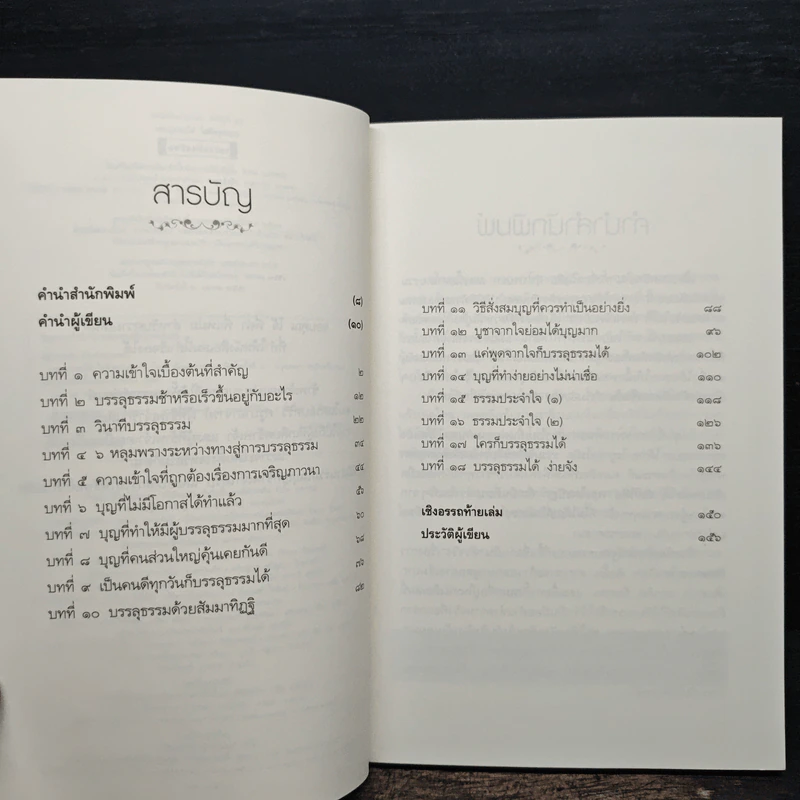 สารบัญ
คำนำสำนักพิมพ์ (๘)
คำนำผู้เขียน (๑๐)
บทที่ ๑ ความเข้าใจเบื้องต้นที่สำคัญ ๒
บทที่ ๒ บรรลุธรรมช้าหรือเร็วขึ้นอยู่กับอะไร ๑๒
บทที่ ๓ วินาทีบรรลุธรรม ๒๒
บทที่ ๔ ๖ หลุมพรางระหว่างทางสู่การบรรลุธรรม ๓๔
บทที่ ๕ ความเข้าใจที่ถูกต้องเรื่องการเจริญภาวนา ๔๔
บทที่ ๖ บุญที่ไม่มีโอกาสได้ทำแล้ว ๕๖
บทที่ ๗ บุญที่ทำให้มีผู้บรรลุธรรมมากที่สุด ๖๐
บทที่ ๘ บุญที่คนส่วนใหญ่คุ้นเคยกันดี ๖๘
บทที่ ๙ เป็นคนดีทุกวันก็บรรลุธรรมได้ ๗๖
บทที่ ๑๐ บรรลุธรรมด้วยสัมมาทิฏฐิ ๘๒
บทที่ ๑๑ วิธีสั่งสมบุญที่ควรทำเป็นอย่างยิ่ง ๘๘
บทที่ ๑๒ บูชาจากใจย่อมได้บุญมาก ๙๖
บทที่ ๑๓ แค่พูดจากใจก็บรรลุธรรมได้ ๑๐๒
บทที่ ๑๔ บุญที่ทำง่ายอย่างไม่น่าเชื่อ ๑๑๐
บทที่ ๑๕ ธรรมประจำใจ (๑) ๑๑๘
บทที่ ๑๖ ธรรมประจำใจ (๒) ๑๒๖
บทที่ ๑๗ ใครก็บรรลุธรรมได้ ๑๓๖
บทที่ ๑๘ บรรลุธรรมได้ ง่ายจัง ๑๔๔
เชิงอรรถท้ายเล่ม ๑๕๐
ประวัติผู้เขียน ๑๕๖